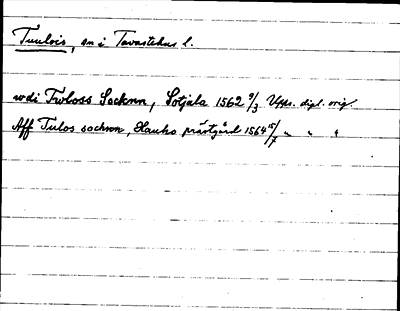 Tuulois, sn i Tavastehus l.
wdi Twloss Socknn, Sotjala 1562 9/3 Upps. dipl. orig.
Aff Tulos sochnn, Hauho prästgård 1564 15/7 " " "